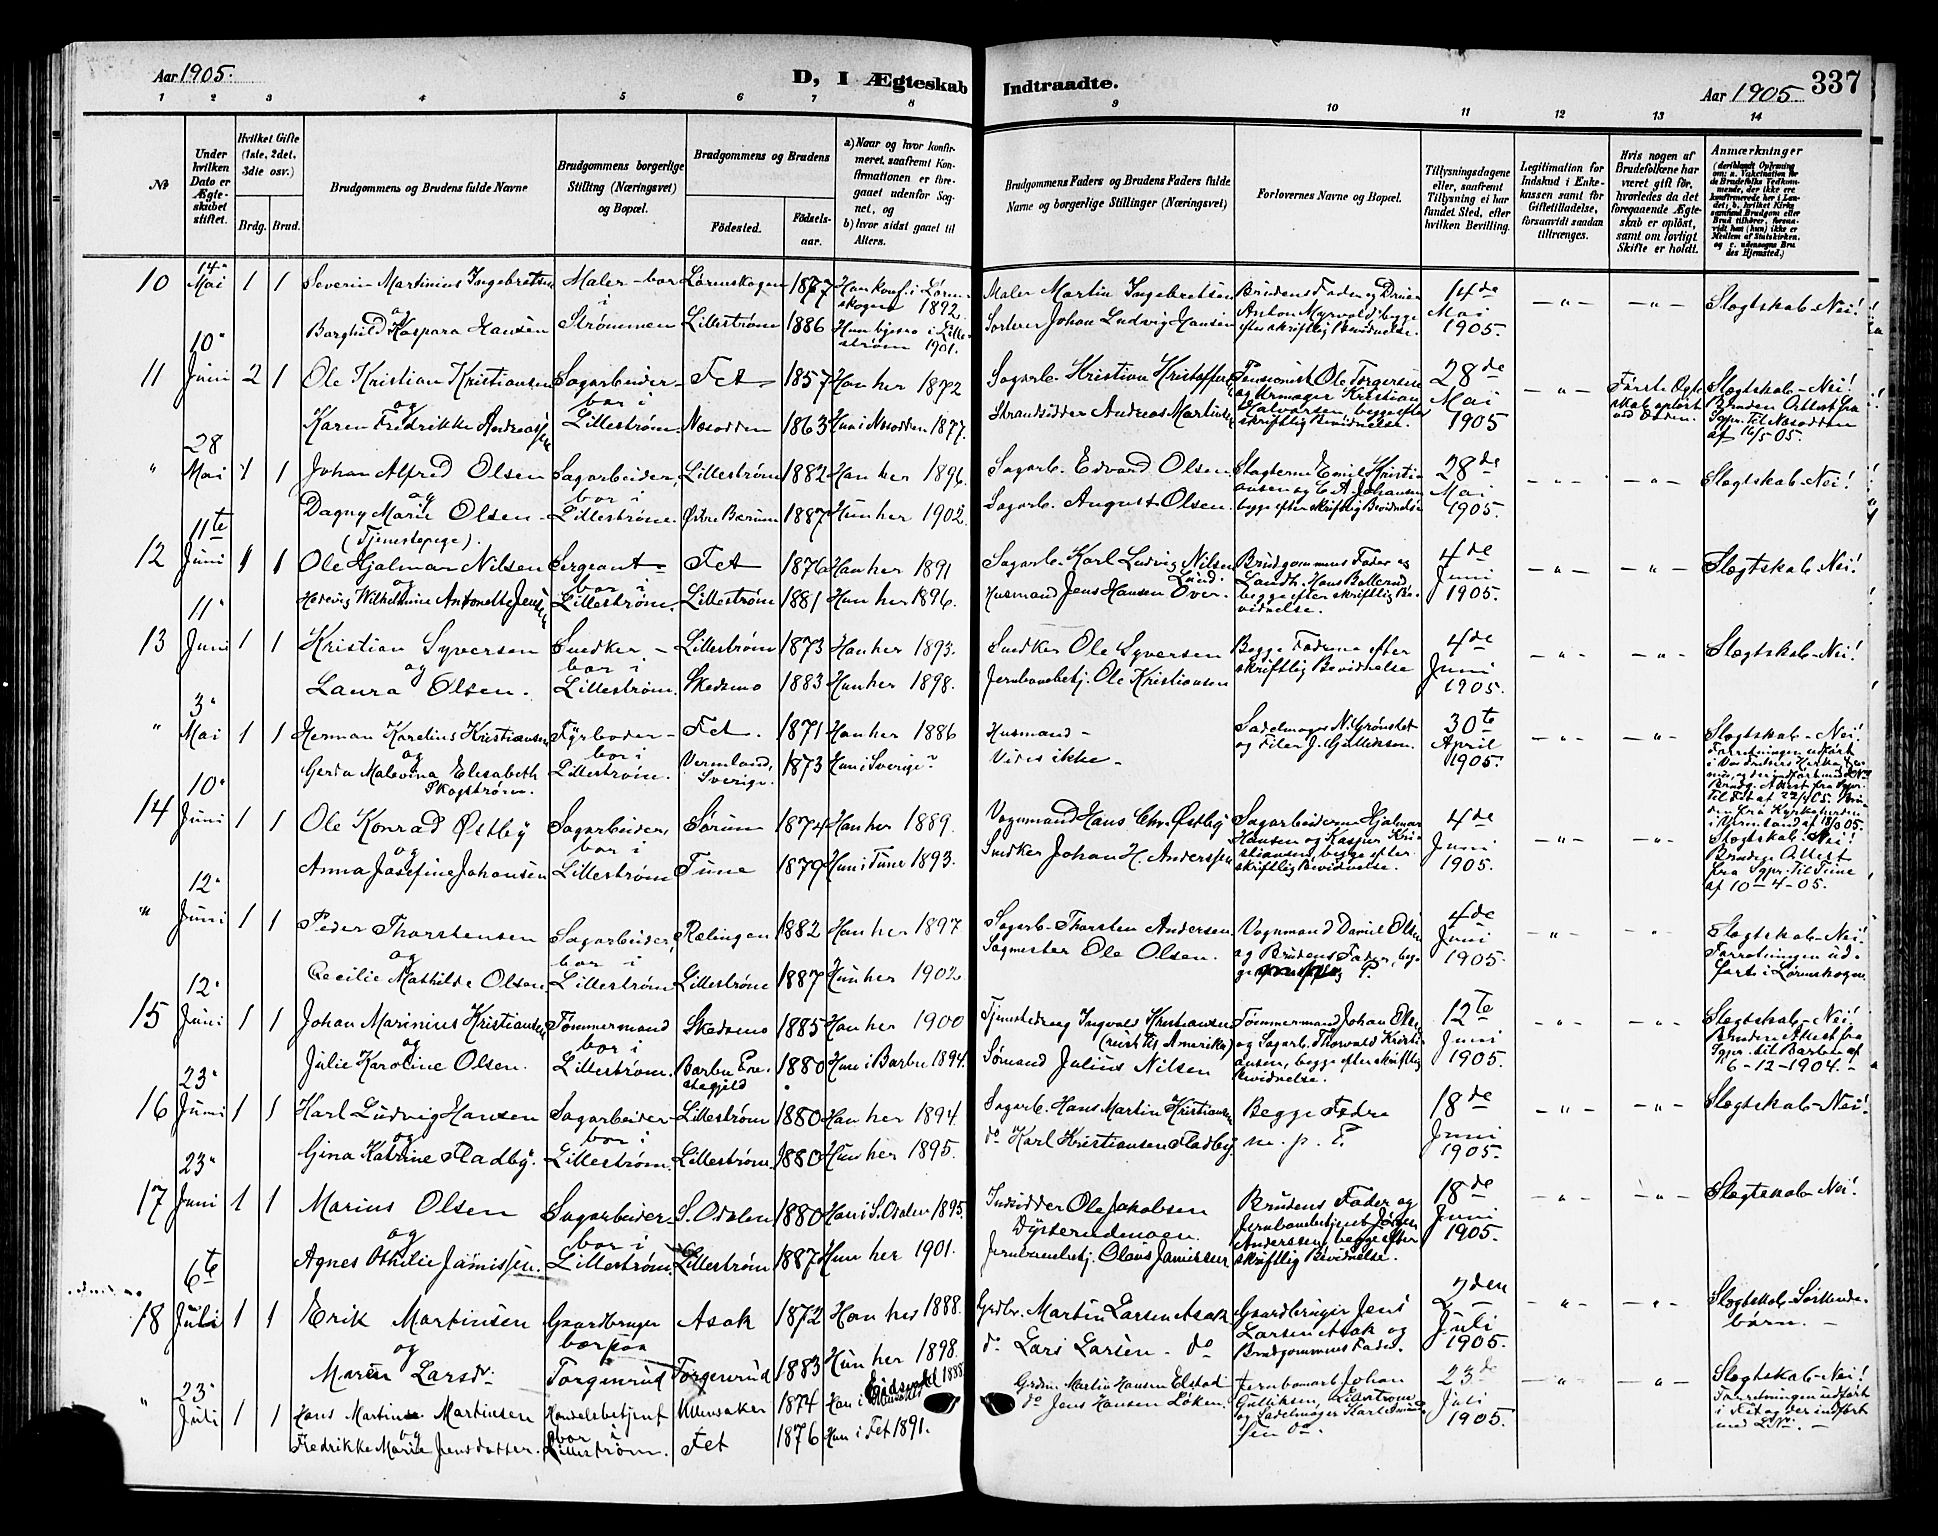 Aar 1905.
D, I Ægteskab Indtraadte.
Aar 1905.
337
1 2 3 4 5 6 7 8 9 10 11 12 13 14
№
Under hvilken Dato er Ægteskabet stiftet.
Hvilket Gifte (1ste, 2det, 3die osv.)
Brdg. Brud.
Brudgommens og Brudens fulde Navne
Brudgommens borgerlige Stilling (Næringsvei) og Bopæl.
Brudgommens og Brudens
Födested.
Födselsaar.
a) Naar og hvor konfirmeret, saafremt Konfirmationen er foregaaet udenfor Sognet, og
b) hvor sidst gaaet til Alters.
Brudgommens Faders og Brudens Faders fulde Navne og borgerlige Stillinger (Næringsvei)
Forlovernes Navne og Bopæl.
Tillysningsdagene eller, saafremt Tillysning ei har fundet Sted, efter hvilken Bevilling.
Legitimation for Indskud i Enkekassen samt for Giftetilladelse, forsaavidt saadan tiltrænges.
Hvis nogen af Brudefolkene har været gift för, hvorledes da det foregaaende Ægteskab er oplöst, samt om lovligt Skifte er holdt.
Anmærkninger
10 14" Mai 1 1 Severin Martinius Ingebretsen Maler - bor Lørenskogen 1877 Han konf. i Lørenskogen 1892. Maler Martin Ingebretsen Brudens Fader og Anton Myrvold, begge 14de Mai 1905. - " - - " - Slægtskab - Nei!
og i
Borghild Kaspara Hansen Strømmen Lillestrøm 1886 Sorterer Johan Ludvig Hansen efter skriftlig Bevidnelse. Lillestrøm 1901.
11 10" Juni 2 1 Ole Kristian Kristiansen Sagarbeider - Fet 1857 Han her 1872 Sagarb. Kristian Pensionist Ole Torgersen og Urmager Kristian Halvorsen, begge efter skriftlig Bevidnelse. 28de Mai 1905 - " - Første Ægteskab opløst ved Døden. Slægtskab - Nei! Bruden Attest fra Sgpr. til Nesodden af 16/5 05.
og bor i
Karen Fredrikke Andreassen Lillestrøm. Nesodden 1863 Hun i Nesodden 1877. Strandsidder Andreas
" 28 Mai 1 1 Johan Alfred Olsen Sagarbeider, Lillestrøm 1882 Han her 1896. Sagarb. Edvard Olsen. Slagterne Emil Kristiansen og C. A. Johansen begge efter skriftlig Bevidnelse 28de Mai 1905. - " - - " - Slægtskab - Nei!
og bor i
Dagny Marie Olsen - Lillestrøm. Østre Bærum 1887 Hun her 1902. Sagarb. August Olsen.
(Tjenestepige).
12 11te Juni 1 1 Ole Hjalmar Nilsen Sergeant - Fet 1876 Han her 1891 Sagarb. Karl Ludvig Nilsen Lund. Brudgommens Fader og Landh. Hans Ballerud, begge efter skriftlig Bevidnelse. 4de Juni 1905. - " - - " - Slægtskab - Nei!
og bor i
Hedevig Wilhelmine Antonette Lillestrøm. Lillestrøm 1881 Hun her 1896. Husmand Jens Hansen Over.
13 11" Juni 1 1 Kristian Syversen Snedker - Lillestrøm 1873 Han her 1893. Snedker Ole Syversen Begge Fædrene efter skriftlig Bevidnelse 4de Juni 1905. - " - - " - Slægtskab - Nei!
og bor i
Laura Olsen. Lillestrøm. Skedsmo 1883 Hun her 1898. Jernbanebetj. Ole Kristiansen
" 3" Mai 1 1 Herman Karelius Kristiansen Fyrbøder - Fet. 1871 Han her 1886 Husmand - Sadelmager N. Grønstet og Filer J. Gulliksen. 30te April 1905. - " - - " - Slægtskab - Nei! Forretningen udført
og bor i
Gerda Malovina Elisabeth Skogstrøm. Lillestrøm. Vermland, Sverige. 1873 Hun i Sverige. Vides ikke -
14 10" Juni 1 1 Ole Konrad Østby Sagarbeider, Sørum 1874 Han her 1889. Vognmand Hans Chr. Østby Sagarbeiderne Hjalmar Hansen og Kaspar Kristiansen, begge efter skriftlig Bevidnelse. 4de Juni 1905. - " - - " - Slægtskab - Nei! Brudens Attest fra Sgpr. til Tune af 10-4-05.
og bor i
Anna Josefine Johansen Lillestrøm Tune 1879 Hun i Tune 1893. Snedker Johan H. Anderssen
" 12" Juni 1 1 Peder Thorstensen Sagarbeider, Rælingen 1882 Han her 1897 Sagarb. Thorsten Andersen Vognmand Daniel Olsen og Brudens Fader, begge 4de Juni 1905. - " - - " - Slægtskab - Nei! Forretningen udført i Lørenskogen
og bor i
Cecilie Mathilde Olsen Lillestrøm Lillestrøm 1887 Hun her 1902 Sagmester Ole Olsen.
15 12" Juni 1 1 Johan Marinius Kristiansen Tømmermand Skedsmo 1885 Han her 1900 Tjenestedreng Ingvald Kristiansen (reist til Amerika) Tømmermand Johan Olsen og Sagarb. Thorvald Kristiansen, begge efter skriftlig Bevidnelse. 12te Juni 1905. - " - - " - Slægtskab - Nei! Bruden Attest fra Sgpr. til Barbu af 6-12-1904.
og bor i
Julie Karoline Olsen. Lillestrøm. Barbu Prestegjeld 1880 Hun i Barbu 1894. Sømand Julius Nilsen
16 23" Juni 1 1 Karl Ludvig Hansen Sagarbeider - Lillestrøm 1880 Han her 1894. Sagarb. Hans Martin Kristiansen Begge Fædre m. p. P. 18de Juni 1905. - " - - " - Slægtskab - Nei!
og bor i
Gina Katrine Fladby. Lillestrøm. Lillestrøm. 1880 Hun her 1895. do Karl Kristiansen Fladby
17 23" Juni 1 1 Marius Olsen Sagarbeider - S. Odalen 1880 Han i S. Odalen 1895. Indsidder Ole Jakobsen Dysterudmoen. Brudens Fader og Jernbanebetjent Jørgen Anderssen, begge efter skriftlig Bevidnelse. 18de Juni 1905. - " - - " - Slægtskab - Nei!
og bor i
Agnes Othilie Jamissen. Lillestrøm. Lillestrøm 1887 Hun her 1901. Jernbanebetj. Olaus Jamissen
18 6te Juli 1 1 Erik Martinsen Gaardbruger Asak 1872 Han her 1888. Grdbr. Martin Larsen Asak Gaardbruger Jens Larsen Asak og Brudgommens Fader. 2den Juli 1905. - " - - " - Slægtskab - Søskendebørn. -
og bor paa
Maren Larsdr. Torgenrud Torgenrud 1883 Hun her 1898. do Lars Larsen - do
" 23" Juli 1 1 Hans Martin Martinsen Handelsbetjent Ullensaker 1874 Han i Eidsvold 1888 Grdm. Martin Hansen Elstad Jernbanearb. Johan Gulliksen, Lillestrøm og Sadelmager 23de Juli 1905. - " - - " - Slægtskab - Nei! Forretningen udført i Fet og der indført med L. №. -
og bor i
Fredrikke Marie Jensdatter. Lillestrøm. Fet 1876 Hun i Fet 1891. do Jens Hansen Løken.